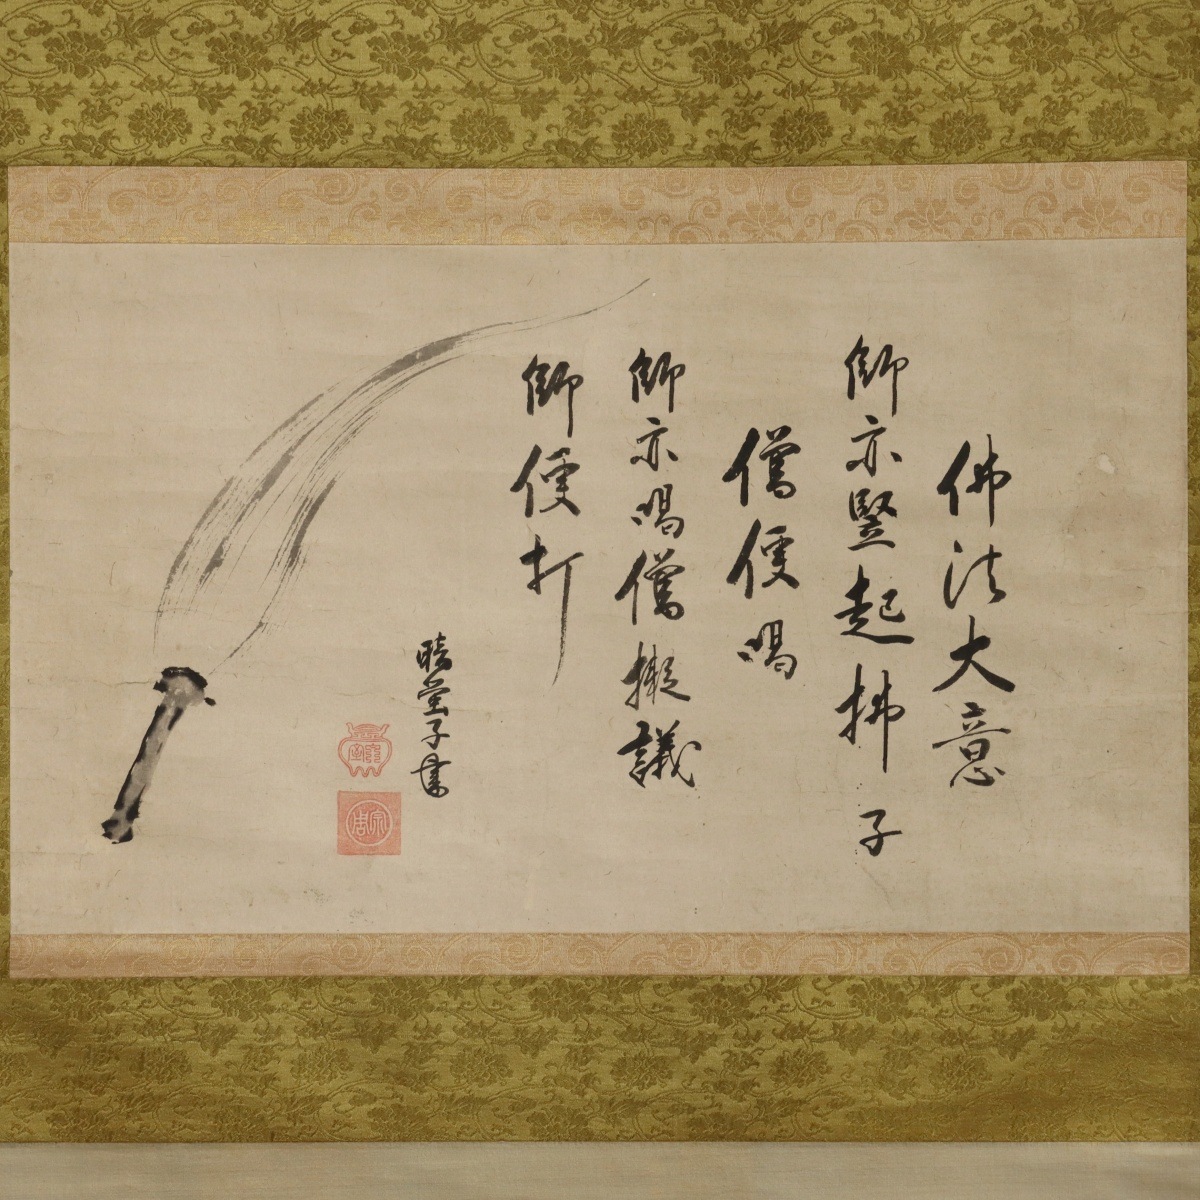 佛法大意
師亦竪起拂子
僧便喝
師亦喝僧擬議
師便打
晦堂子書
宗周